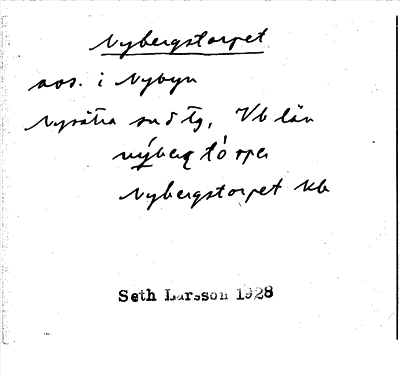 Nybergstorpet
avs. i Nybyn
Nysätra sn o tg, Vb län
nýberg tórpe
Nybergstorpet kb
Seth Larsson 1928